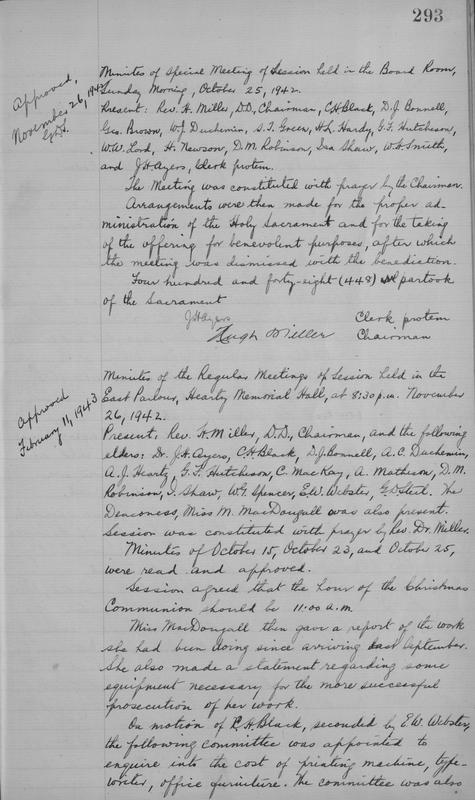 293
Approved,
November 26, 1942
G.D.S.
Minutes of Special Meeting of Session held in the Board Room,
Sunday Morning, October 25, 1942.
Present: Rev. H. Miller, D.D., Chairman, C.H. Black, D.J. Bonnell,
Geo. Brown, W.J. Duchemin, S.T. Green, H.L. Hardy, G.F. Hutcheson,
W.W. Lord, H. Newson, D.M. Robinson, Ira Shaw, W.H. Smith,
and J.H. Ayers, Clerk protem.
The Meeting was constituted with prayer by the Chairman.
Arrangements were then made for the proper ad-
ministration of the Holy Sacrament and for the taking
of the offering for benevolent purposes, after which
the meeting was dismissed with the benediction.
Four hundred and forty-eight (448) partook
of the Sacrament
J.H. Ayers Clerk protem
Hugh Miller Chairman
Approved
February 11, 1943
Minutes of the Regular Meetings of Session held in the
East Parlour, Hearty Memorial Hall, at 8:30 p.m. November
26, 1942.
Present: Rev. H. Miller, D.D., Chairman, and the following
elders: Dr. J.H. Ayers, C.H. Black, D.J. Bonnell, A.C. Duchemin,
A.J. Hearty, G.F. Hutcheson, C. MacKay, A. Matheson, D.M.
Robinson, I. Shaw, W.G. Spencer, E.W. Webster, G.D. Steel. The
Deaconess, Miss M. MacDougall was also present.
Session was constituted with prayer by Rev. Dr. Miller.
Minutes of October 15, October 23, and October 25,
were read and approved.
Session agreed that the hour of the Christmas
Communion should be 11:00 a.m.
Miss MacDougall then gave a report of the work
she had been doing since arriving last September.
She also made a statement regarding some
equipment necessary for the more successful
prosecution of her work.
On motion of C.H. Black, seconded by E.W. Webster,
the following committee was appointed to
enquire into the cost of printing machine, type-
writer, office furniture. The committee was also